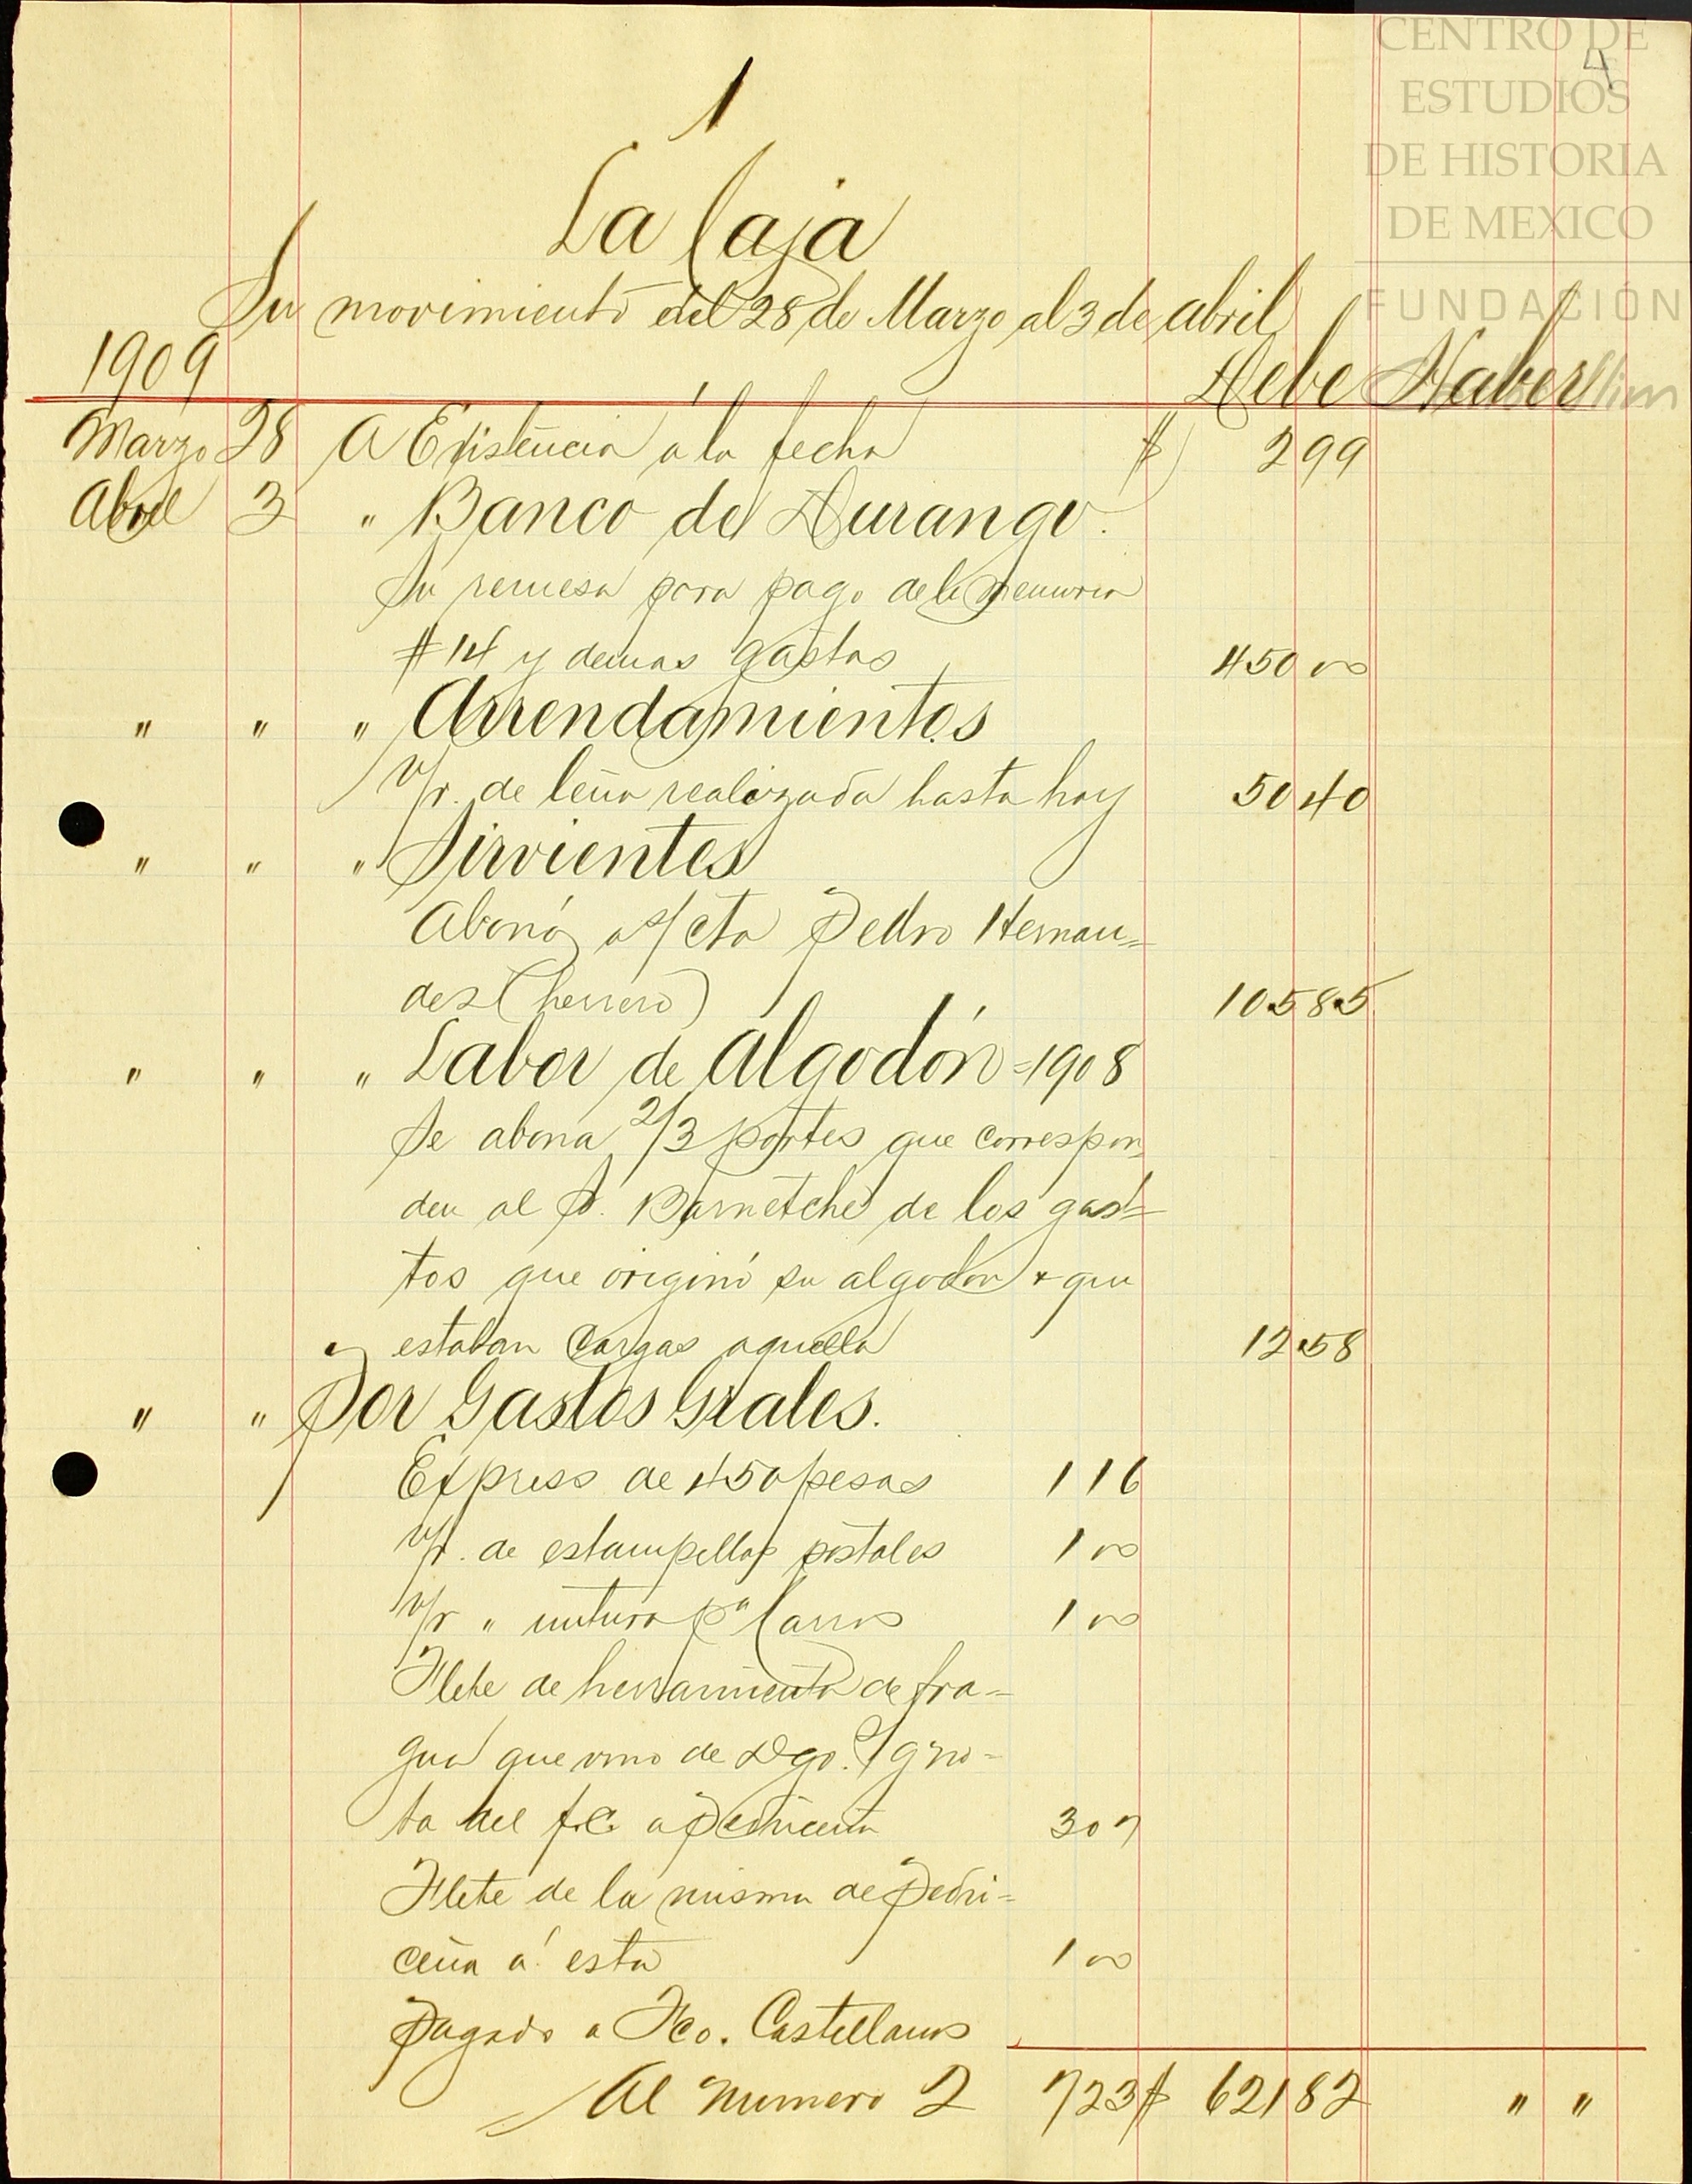 CENTRO DE
ESTUDIOS
DE HISTORIA
DE MEXICO
FUNDACIÓN
4
1
La Caja
Su movimiento del 28 de Marzo al 3 de abril
1909 Debe Haber
Marzo 28 A Existencia á la fecha $ 2 99
Abril 3 " Banco de Durango.
Su remesa para pago de la memoria
#14 y demas gastos 450 00
" " " Arrendamientos
v/r. de leña realizada hasta hoy 50 40
" " " Sirvientes
Abonó a s/cta Pedro Hernan=
dez (herrero) 105 85
" " " Labor de Algodón = 1908
Se abona 2/3 partes que correspon
den al S. Barnetche de los gas=
tos que originó su algodon y que
estaban cargas aquella 12 58
" " Por Gastos Grales.
Express de 450 pesos 1 16
v/r. de estampillas postales 1 00
v/r " untura pa Carros 1 00
Flete de herramienta de fra=
gua que vino de Dgo. S/g no=
ta del f.c. a Pedriceña 3 07
Flete de la misma de Pedri=
ceña á esta 1 00
Pagado a Fco. Castellanos
Al Numero 2 7 23 $ 621 82 " "